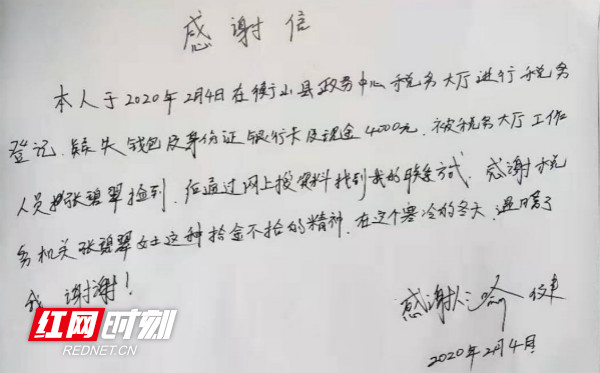 感谢信
本人于2020年2月4日在衡山县政务中心税务大厅进行税务
登记、疑失钱包及身份证银行卡及现金4000元、被税务大厅工作
人员张碧翠捡到、后通过网上投资料找到我的联系方式、感谢税
务机关张碧翠女士这种拾金不拾的精神、在这个寒冷的冬天、温暖了
我 谢谢！
感谢人：
2020年2月4日
红网时刻
REDNET.CN